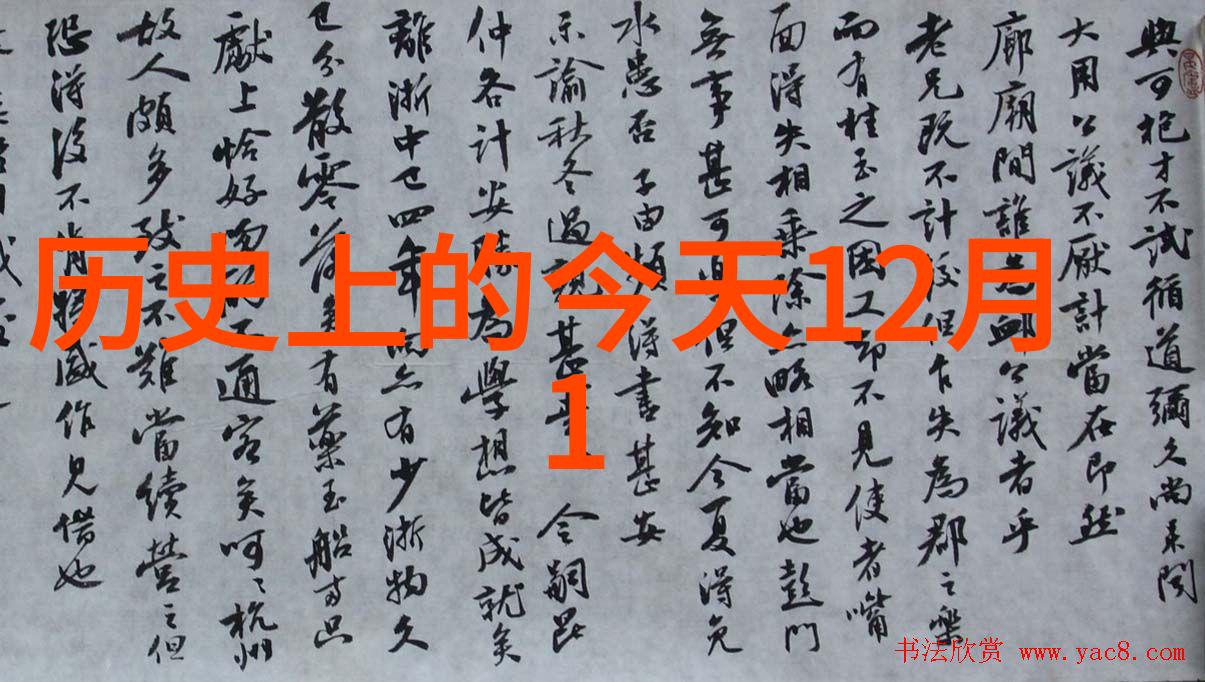 與可抱才不試循道彌久尚未聞
大用公議不厭計當在即然
廊廟間誰為卹公議者乎
老兄既不計較但乍失為郡之樂
而有桂玉之困又卻不見使者嘴
面得失相乘除亦略相當也彭門
無事甚可樂但不知今夏得免
水患否子由頻得書甚安
示諭秋冬過親甚幸令嗣昆
仲各計安勝為學想皆成就矣
離浙中已四年向亦有少浙物久
已分散零落矣有藥玉船兩只
獻上恰好吻酌不通客矣呵呵杭州
故人頗多致之不難當續營之但
恐得後不肯將盛作見借也
历史上的今天12月
1
书法欣赏 www.yac8.com